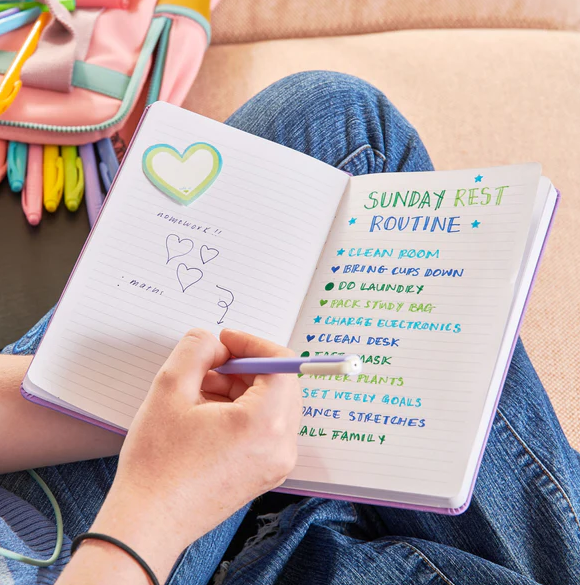 homework !!
: math
SUNDAY REST
ROUTINE
CLEAN ROOM
BRING CUPS DOWN
DO LAUNDRY
PACK STUDY BAG
CHARGE ELECTRONICS
CLEAN DESK
FACE MASK
WATER PLANTS
SET WEELY GOALS
DANCE STRETCHES
CALL FAMILY